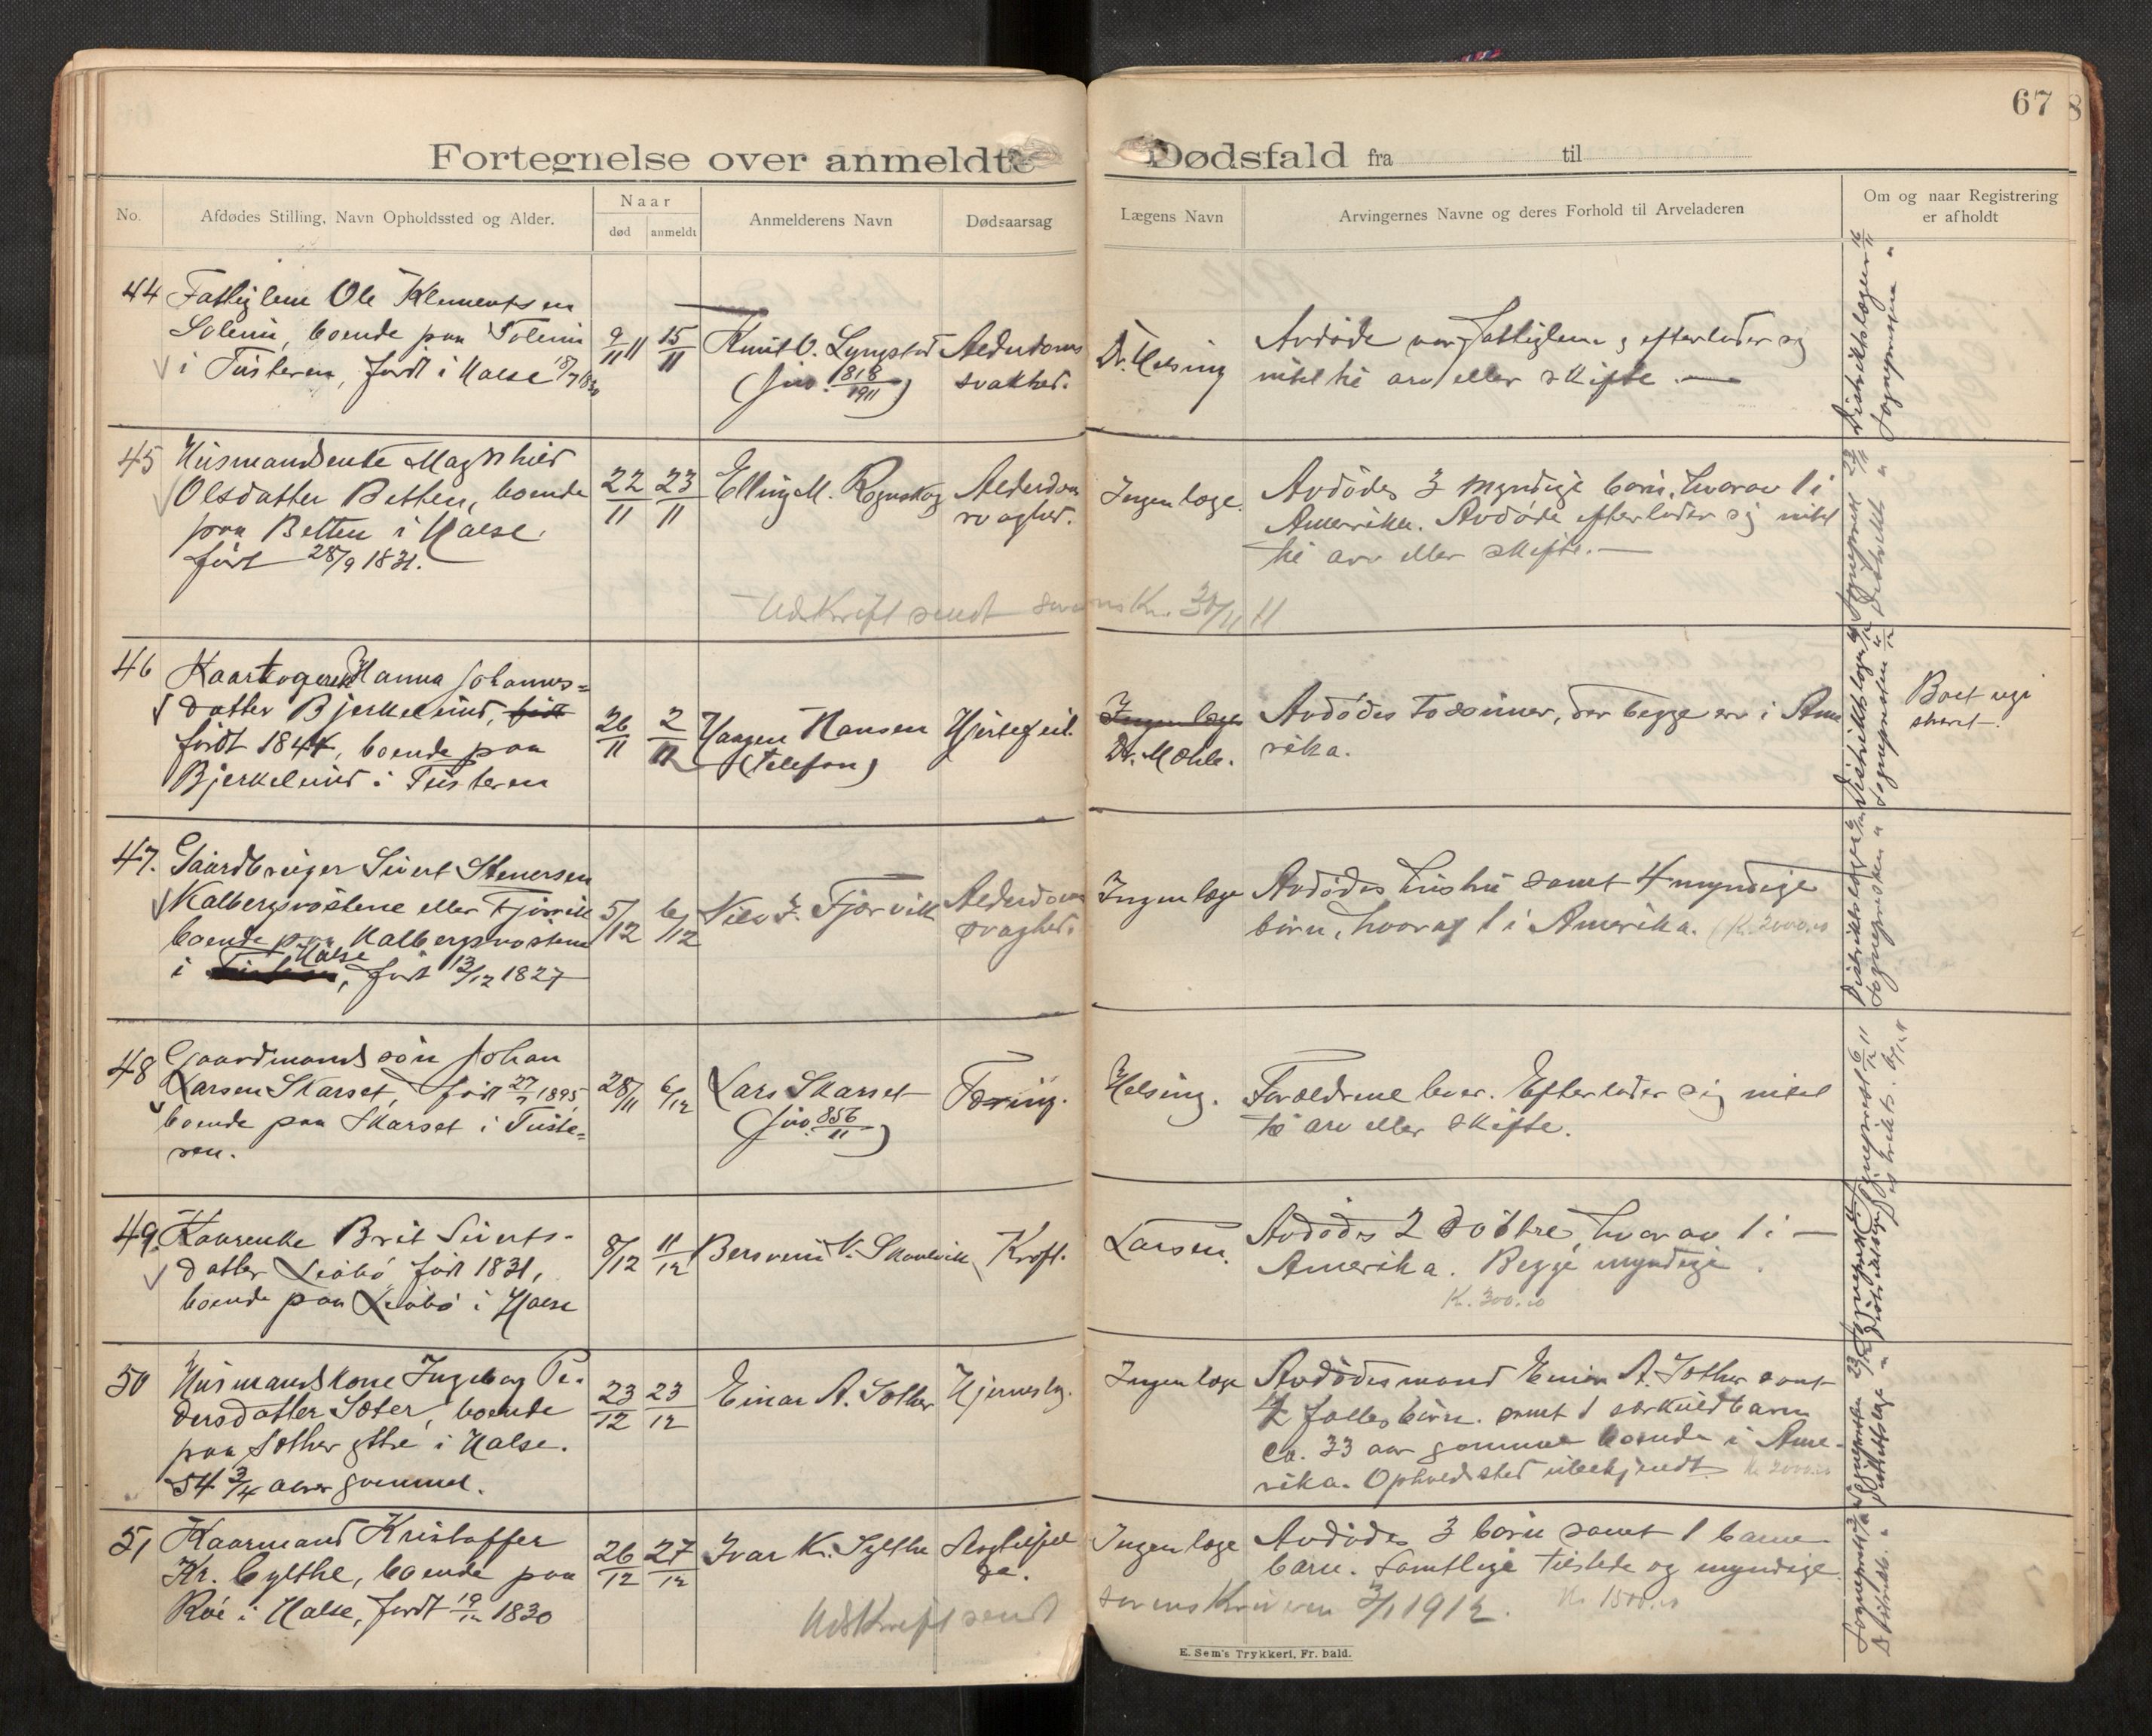 67
8
Fortegnelse over anmeldte Dødsfald fra til
No.
Afdødes Stilling, Navn Opholdssted og Alder.
Naar
død
anmeldt
Anmelderens Navn
Dødsaarsag
Lægens Navn
Arvingernes Navne og deres Forhold til Arveladeren
Om og naar Registrering
er afholdt
44 Fattiglem Ole Klementsen
Solem, boende paa Solem
i Tusteren, født i Halse 18/7 1830
9/11 11
15/11
Knut O. Lyngstad
(jno. 818/1911)
Alderdoms
svakhed.
Dr. Helsing
Avdøde var fattiglem og efterlader sig
intet til arv eller skifte. —
45 Husmandsenke Magnhild
Olsdatter Betten, boende
paa Betten i Halse.
født 28/9 1831.
22/11
23/11
Elling M. Rognskog
Alderdom
svaghed.
Ingen læge.
Avdødes 3 myndige børn, hvorav 1 i
Amerika. Avdøde efterlader sig intet
til arv eller skifte. —
Udskrift sendt sorenskr. 30/11 11
46 Kaartagerske Hanna Johannes=
datter Bjerkelund, født
født 1844, boende paa
Bjerkelund i Tusteren
26/11
2/12
Haagen Hansen
(telefon)
Hjertefeil.
Ingen læge
Dr. Mohle.
Avdødes to sønner, der begge er i Ame
rika.
Boet regi
streret.
47. Gaardbruger Sivert Stenersen
Kalbergsvøstene eller Fjørvik
boende paa Kalbergsvøstene
i Halse, født 13/12 1827
5/12
6/12
Nils S. Fjørvik
Alderdoms
svaghed.
Ingen læge
Avdødes hustru samt 4 myndige
børn, hvorav 1 i Amerika. (K. 2000.00
48 Gaardmandssøn Johan
Larsen Skarset, født 27/7 1895,
boende paa Skarset i Tuste=
ren.
28/11
6/12
Lars Skarset
(jno. 856/11)
Tæring.
Helsing.
Forældrene lever. Efterlader sig intet
til arv eller skifte.
49. Kaarenke Brit Siverts-
datter Leabø, født 1831,
boende paa Leabø i Halse
8/12
11/12
Bersvein V. Skaalvik
Kræft.
Larsen.
Avdødes 2 døttre, hvorav 1 i —
Amerika. Begge myndige.
K. 300.00
50 Husmandskone Ingeborg Pe-
dersdatter Sæter, boende
paa Sæther ytre i Halse.
54 3/4 aar gammel.
23/12
23/12
Einar A. Sæther
Hjernesl.
Ingen læge
Avdødes mand Einar A. Sæther samt
2 fælles børn. samt 1 særkuldbarn
ca. 33 aar gammel boende i Ame-
rika. Opholdssted ubekjendt. K. 2000.00
51 Kaarmand Kristoffer
Kr. Sylthe, boende paa
Roe i Halse, født 19/12 1830
26/12
27/12
Ivar K. Sylthe
Ingen læge
Avdødes 3 børn samt 1 barne-
barn. Samtlige tilstede og myndige.
Udskrift sendt sorenskriveren 3/1 1912. Kr 1500.00
E. Sem's Trykkeri, Fr. hald.